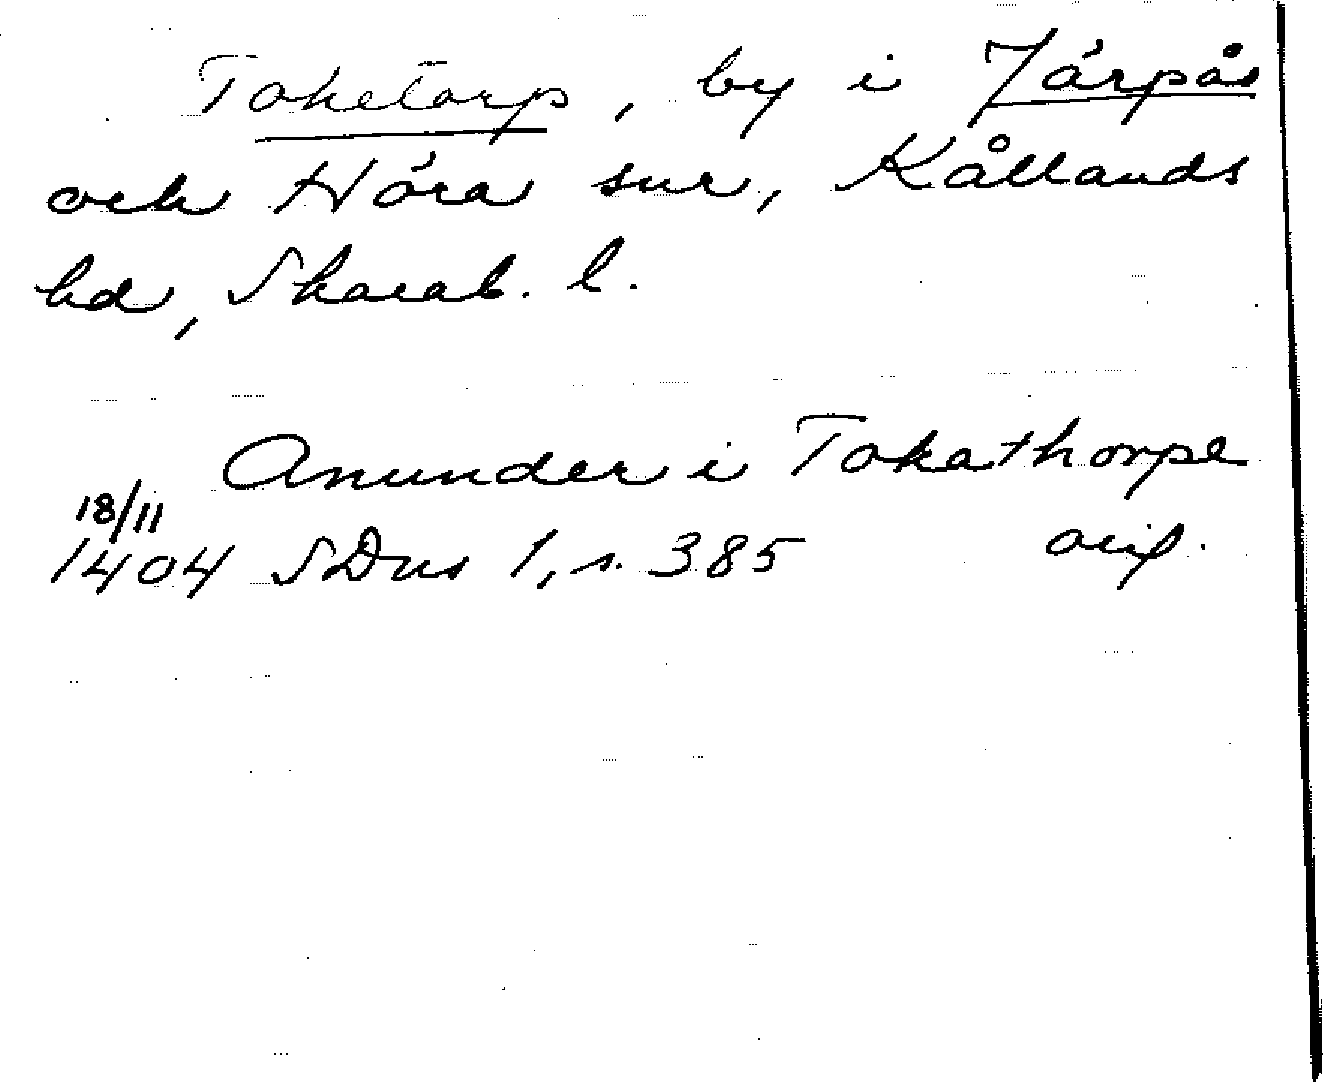 Toketorp, by i Järpås
och Hära snr, Kållands
hd, Skarab. l.
Anunder i Tokathorpe
18/11
1404 SDns 1, s. 385 orig.